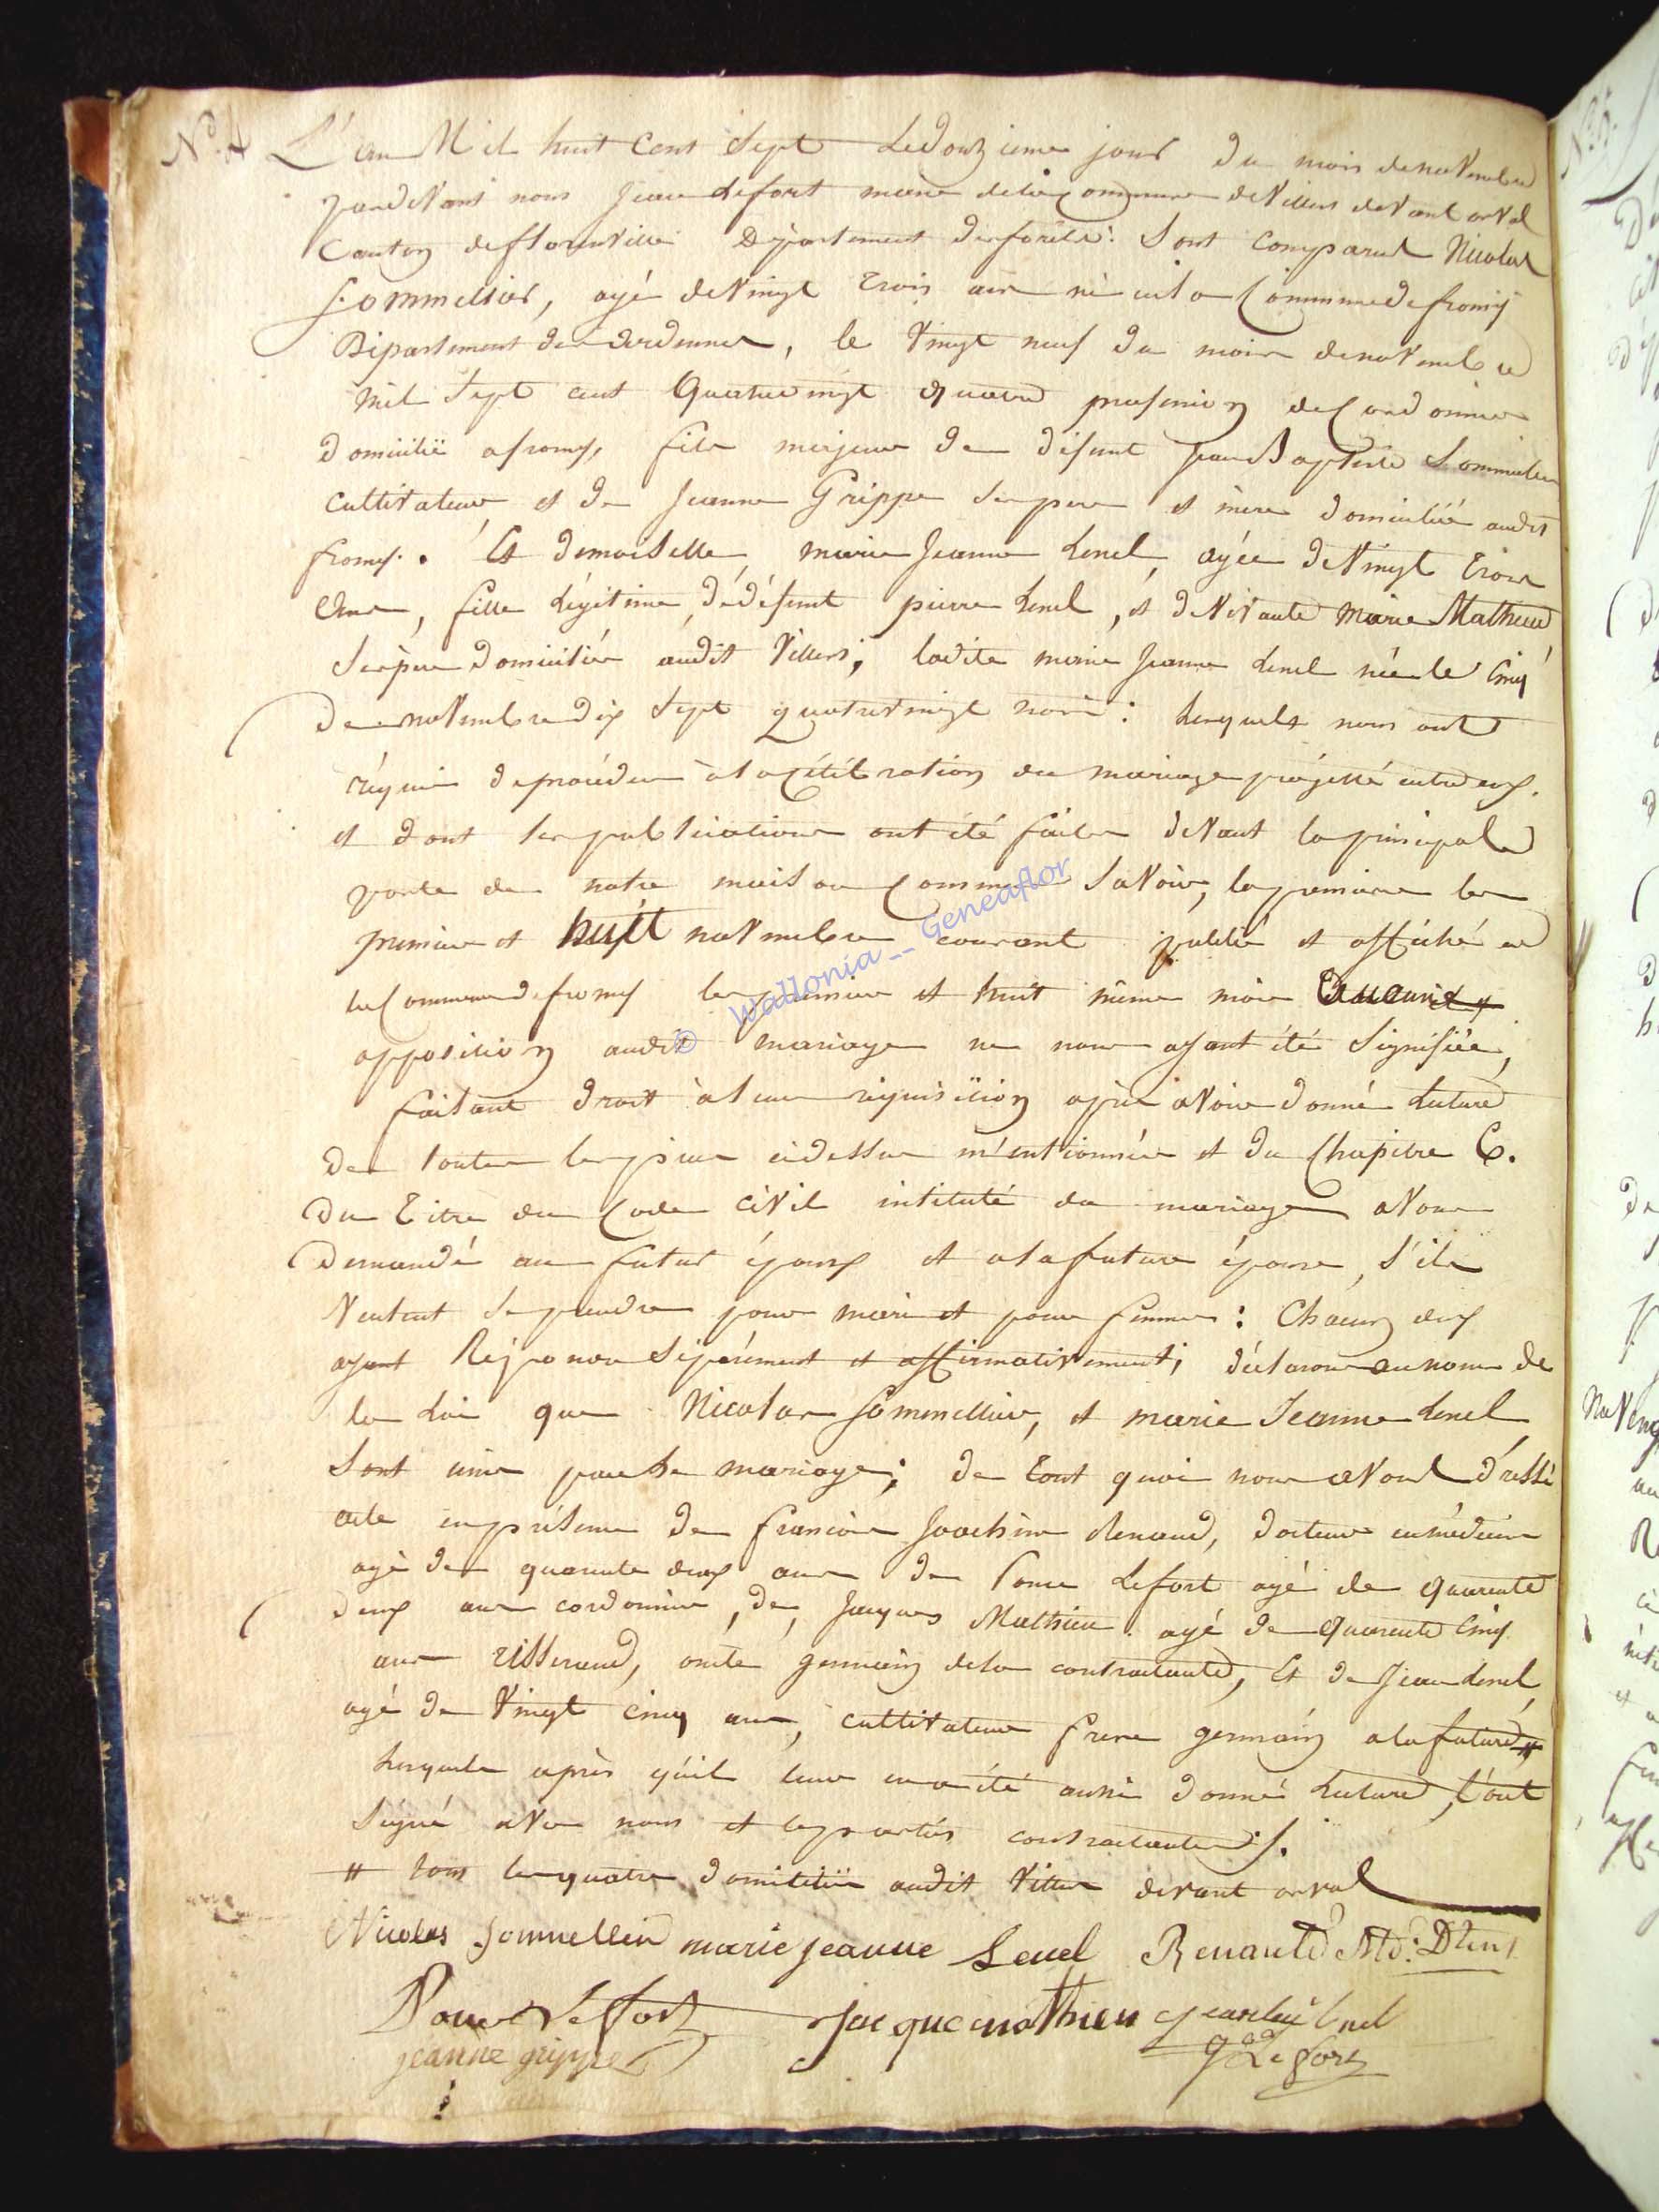 N.º 4 L'an Mil huit Cent Sept Le douzieme jour du mois de novembre
pardevant nous Jean Lefort maire de la Commune de Villers devant orval
Canton de florenville Département des forêts. Sont comparus Nicolas
Sommellier, agé de vingt trois ans né en la Commune de fromÿ
Département des ardennes, le vingt neuf du mois de novembre
mil Sept cent Quatre vingt quatre profession de Cordonnier
domicilié a fromy, fils majeur de défunt Jean Baptiste Sommelier
cultivateur et de Jeanne Grippe Ses pere et mère domiciliés audit
fromy. Et demoiselle, marie Jeanne Lenel, agée de vingt trois
ans, fille légitime, de défunt pierre Lenel, et de vivante Marie Mathieu
Ses père domiciliés audit Villers; ladite marie Jeanne Lenel née le cinq
de novembre dix Sept quatrevingt : Lesquels nous ont
réquis de procéder à la célébration du mariage projetté entre eux.
et dont les publications ont été faites devant la principale
porte de notre maison Commune Savoir, la premiere les
premier et huit novembre courant publié et affiché en
la Commune de fromy les premier et huit même mois Aucune
opposition audit mariage ne nous ayant été Signifiée,
faisant droit à leur réquisition après avoir donné Lecture
de toutes les pieces cidessus mentionnées et du Chapitre 6.
du Titre du Code civil intitulé du mariage avons
demandé au futur époux et a la future épouse, s'ils
veulent Se prendre pour mari et pour femme : Chacun deux
ayant Répondu Séparément et affirmativement; déclarons au nom de
la Loi que Nicolas Sommellier, et marie Jeanne Lenel
Sont unis par le mariage; de tout quoi nous avons dressé
acte en présence de francois Joachim Renaud, docteur en médecine
agé de quarante deux ans de Ponce Lefort agé de quarante
deux ans cordonnier, de, Jacques Mathieu agé de quarante cinq
ans tisserand, oncle germain de la contractante, Et de Jean Lenel,
agé de vingt cinq ans, cultivateur frere germain a la future #
Lesquels après qu'il leur en a été aussi donné Lecture, l'ont
Signé avec nous et les parties contractantes.
# tous les quatre domiciliés audit Villers devant orval
Nicolas Sommellier marie jeanne Lenel Renauld
Ponce Lefort jacque mathieu
© Wallonia -- Geneaflor
jeanne grippe J Lefort